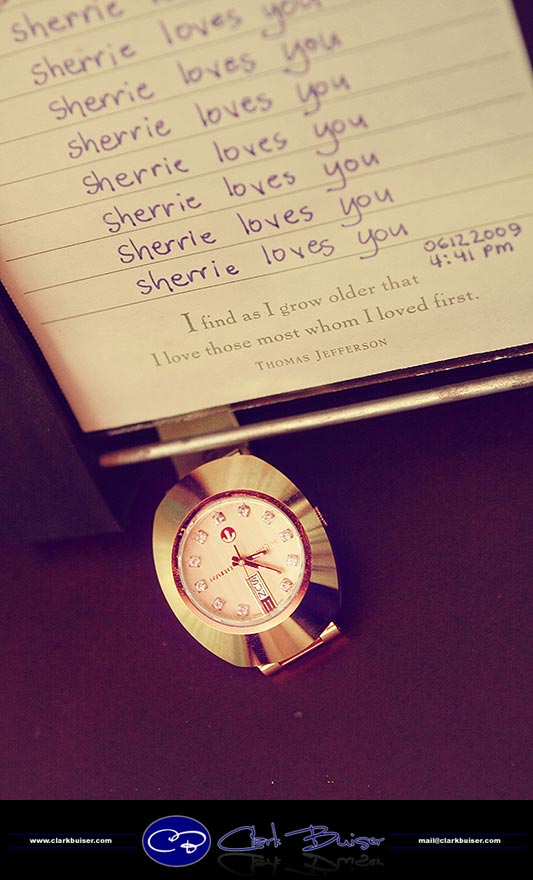 sherrie loves
sherrie loves you
sherrie loves you
sherrie loves you
sherrie loves you
sherrie loves you
sherrie loves you
sherrie loves you
06122009
4:41 pm
I find as I grow older that
I love those most whom I loved first.
THOMAS JEFFERSON
RADO
www.clarkbuiser.com
CB
Clark Buiser
mail@clarkbuiser.com